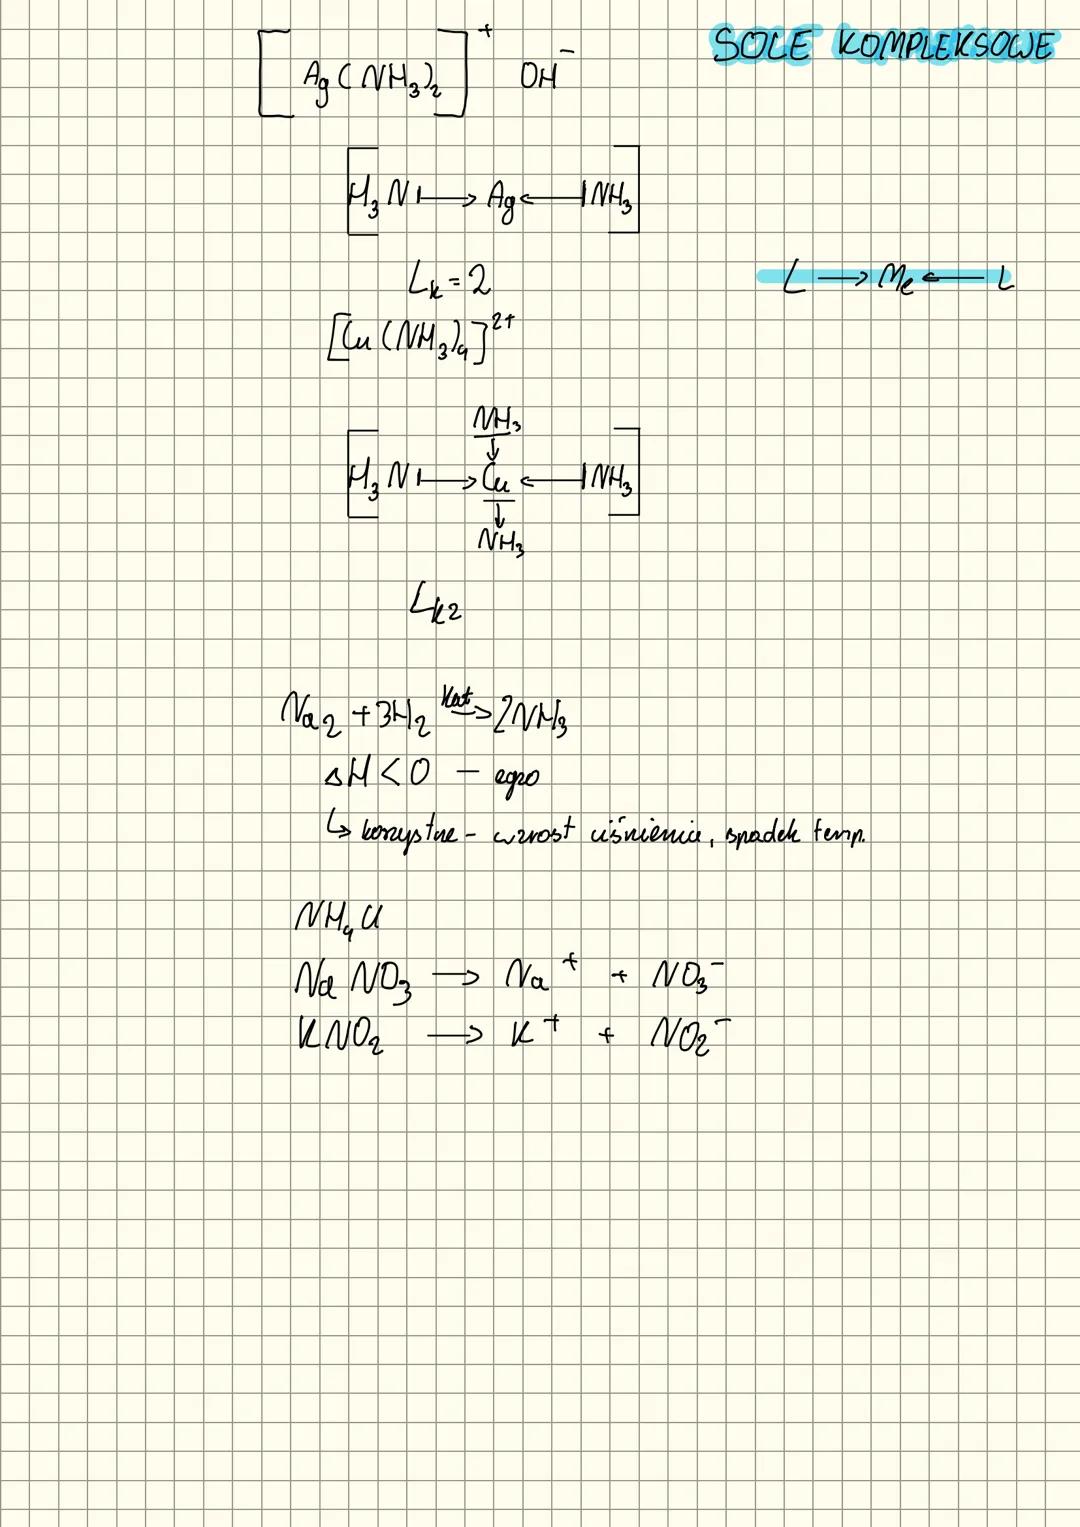 SOLE KOMPLEKSOWE
[Ag(NH₃)₂]⁺ OH⁻
[H₃N|⟶Ag⟵|NH₃]
Lk = 2
L ⟶ Me ⟵ L
[Cu(NH₃)₄]²⁺
NH₃
↓
[H₃N|⟶Cu⟵|NH₃]
↓
NH₃
Lk2
Na₂ + 3H₂ Kat→ 2NH₃
ΔH < 0 – egzo
↳ korzystne – wzrost ciśnienia, spadek temp.
NH₄Cl
NaNO₃ ⟶ Na⁺ + NO₃⁻
KNO₂ ⟶ K⁺ + NO₂⁻